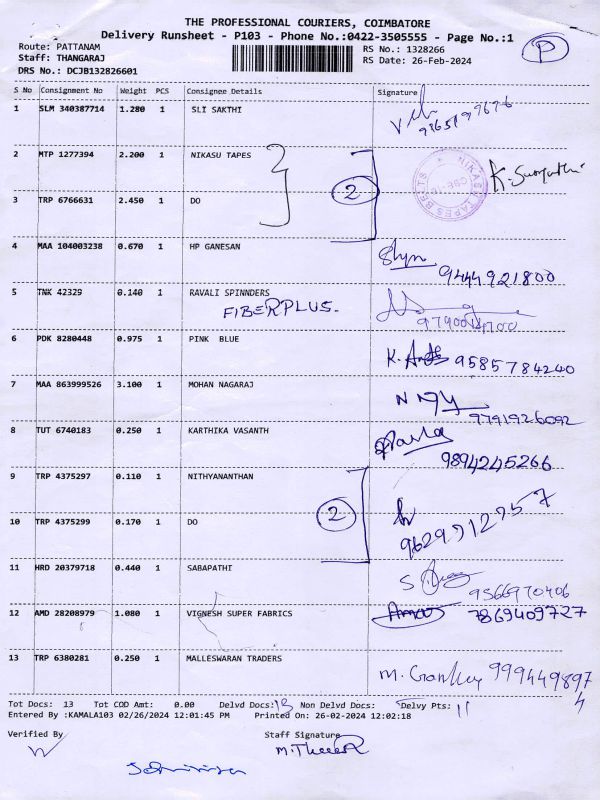 THE PROFESSIONAL COURIERS, COIMBATORE
Delivery Runsheet - P103 - Phone No.:0422-3505555 - Page No.:1
P
Route: PATTANAM
RS No.: 1328266
Staff: THANGARAJ
RS Date: 26-Feb-2024
DRS No.: DCJB132826601
S No Consignment No Weight PCS Consignee Details Signature
1 SLM 340387714 1.280 1 SLI SAKTHI
2 MTP 1277394 2.200 1 NIKASU TAPES
2
NIKASU TAPES BELTS
3 TRP 6766631 2.450 1 DO
4 MAA 104003238 0.670 1 HP GANESAN
9444921800
5 TNK 42329 0.140 1 RAVALI SPINNDERS
FIBERPLUS.
6 PDK 8280448 0.975 1 PINK BLUE
9585784240
7 MAA 863999526 3.100 1 MOHAN NAGARAJ
9791926092
8 TUT 6740183 0.250 1 KARTHIKA VASANTH
9894245266
9 TRP 4375297 0.110 1 NITHYANANTHAN
2
10 TRP 4375299 0.170 1 DO
9629712757
11 HRD 20379718 0.440 1 SABAPATHI
9566970406
12 AMD 28208979 1.080 1 VIGNESH SUPER FABRICS 7869409727
13 TRP 6380281 0.250 1 MALLESWARAN TRADERS
9994498974
Tot Docs: 13 Tot COD Amt: 0.00 Delvd Docs: 13 Non Delvd Docs: Delvy Pts: 11
Entered By :KAMALA103 02/26/2024 12:01:45 PM Printed On: 26-02-2024 12:02:18
Verified By Staff Signature